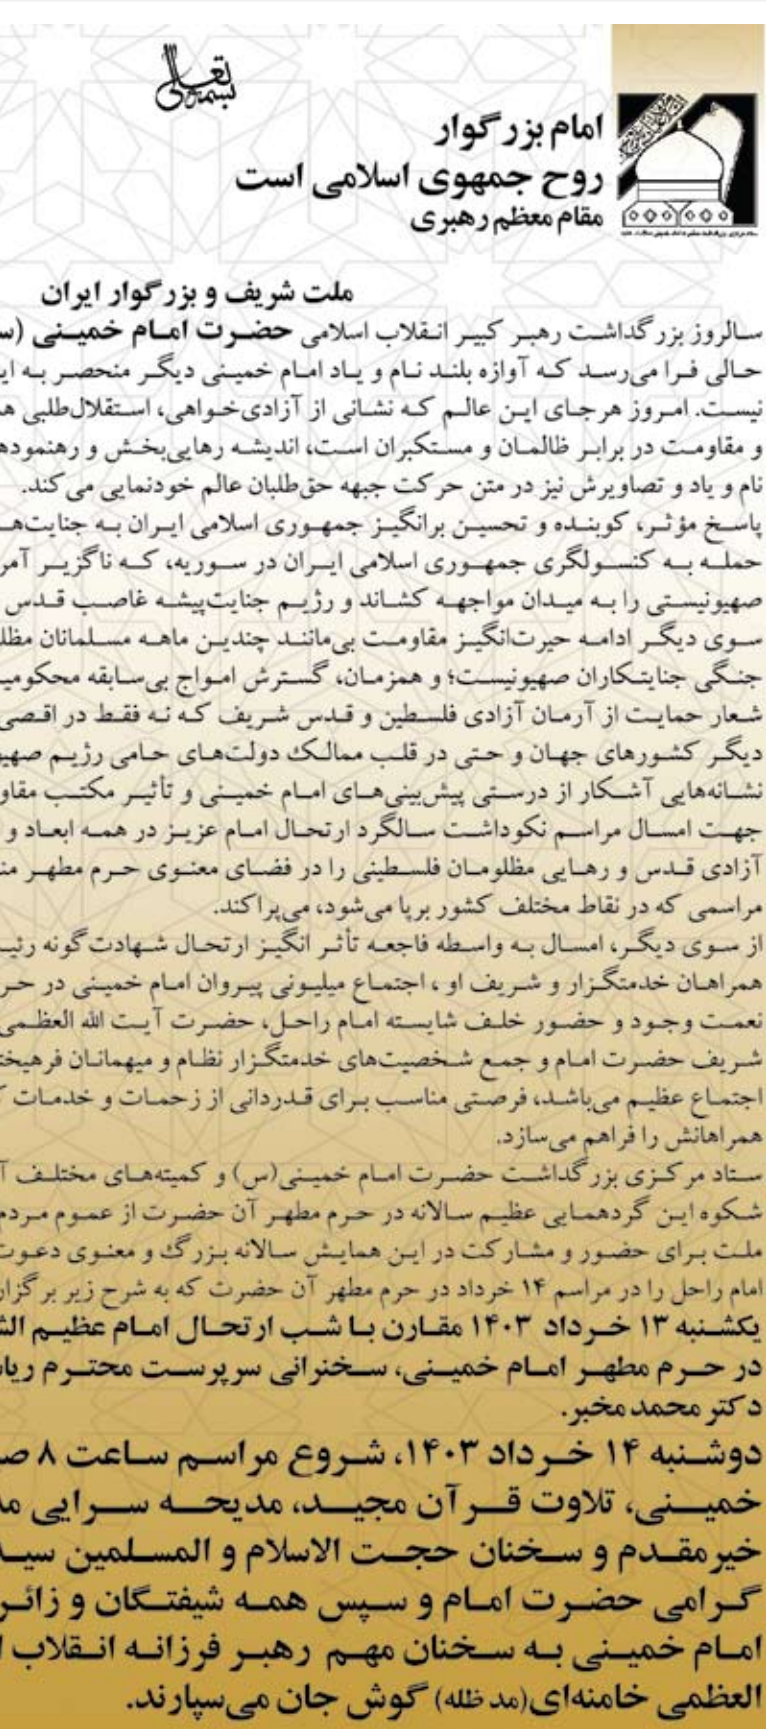 بسمه تعالی
امام بزرگوار
روح جمهوی اسلامی است
مقام معظم رهبری
ملت شریف و بزرگوار ایران
سالروز بزرگداشت رهبر کبیر انقلاب اسلامی حضرت امام خمینی (س
حالی فرا می‌رسد که آوازه بلند نام و یاد امام خمینی دیگر منحصر به ای
نیست. امروز هرجای این عالم که نشانی از آزادی‌خواهی، استقلال‌طلبی ه
و مقاومت در برابر ظالمان و مستکبران است، اندیشه رهایی‌بخش و رهنموده
نام و یاد و تصاویرش نیز در متن حرکت جبهه حق‌طلبان عالم خودنمایی می‌کند.
پاسخ مؤثر، کوبنده و تحسین برانگیز جمهوری اسلامی ایران به جنایت‌ه
حمله به کنسولگری جمهوری اسلامی ایران در سوریه، که ناگزیر آمر
صهیونیستی را به میدان مواجهه کشاند و رژیم جنایت‌پیشه غاصب قدس
سوی دیگر ادامه حیرت‌انگیز مقاومت بی‌مانند چندین ماهه مسلمانان مظل
جنگی جنایتکاران صهیونیست؛ و همزمان، گسترش امواج بی‌سابقه محکومی
شعار حمایت از آرمان آزادی فلسطین و قدس شریف که نه فقط در اقصی
دیگر کشورهای جهان و حتی در قلب ممالک دولت‌های حامی رژیم صهی
نشانه‌هایی آشکار از درستی پیش‌بینی‌های امام خمینی و تأثیر مکتب مقاو
جهت امسال مراسم نکوداشت سالگرد ارتحال امام عزیز در همه ابعاد و
آزادی قدس و رهایی مظلومان فلسطینی را در فضای معنوی حرم مطهر من
مراسمی که در نقاط مختلف کشور برپا می‌شود، می‌پراکند.
از سوی دیگر، امسال به واسطه فاجعه تأثر انگیز ارتحال شهادت‌گونه رئی
همراهان خدمتگزار و شریف او ، اجتماع میلیونی پیروان امام خمینی در حر
نعمت وجود و حضور خلف شایسته امام راحل، حضرت آیت الله العظمی
شریف حضرت امام و جمع شخصیت‌های خدمتگزار نظام و میهمانان فرهیخت
اجتماع عظیم می‌باشد، فرصتی مناسب برای قدردانی از زحمات و خدمات ک
همراهانش را فراهم می‌سازد.
ستاد مرکزی بزرگداشت حضرت امام خمینی(س) و کمیته‌های مختلف آ
شکوه این گردهمایی عظیم سالانه در حرم مطهر آن حضرت از عموم مردم
ملت برای حضور و مشارکت در این همایش سالانه بزرگ و معنوی دعوت
امام راحل را در مراسم ۱۴ خرداد در حرم مطهر آن حضرت که به شرح زیر برگزار
یکشنبه ۱۳ خرداد ۱۴۰۳ مقارن با شب ارتحال امام عظیم الش
در حرم مطهر امام خمینی، سخنرانی سرپرست محترم ریا
دکتر محمد مخبر.
دوشنبه ۱۴ خرداد ۱۴۰۳، شروع مراسم ساعت ۸ ص
خمینی، تلاوت قرآن مجید، مدیحه سرایی مد
خیرمقدم و سخنان حجت الاسلام و المسلمین سید
گرامی حضرت امام و سپس همه شیفتگان و زائر
امام خمینی به سخنان مهم رهبر فرزانه انقلاب ا
العظمی خامنه‌ای(مد ظله) گوش جان می‌سپارند.